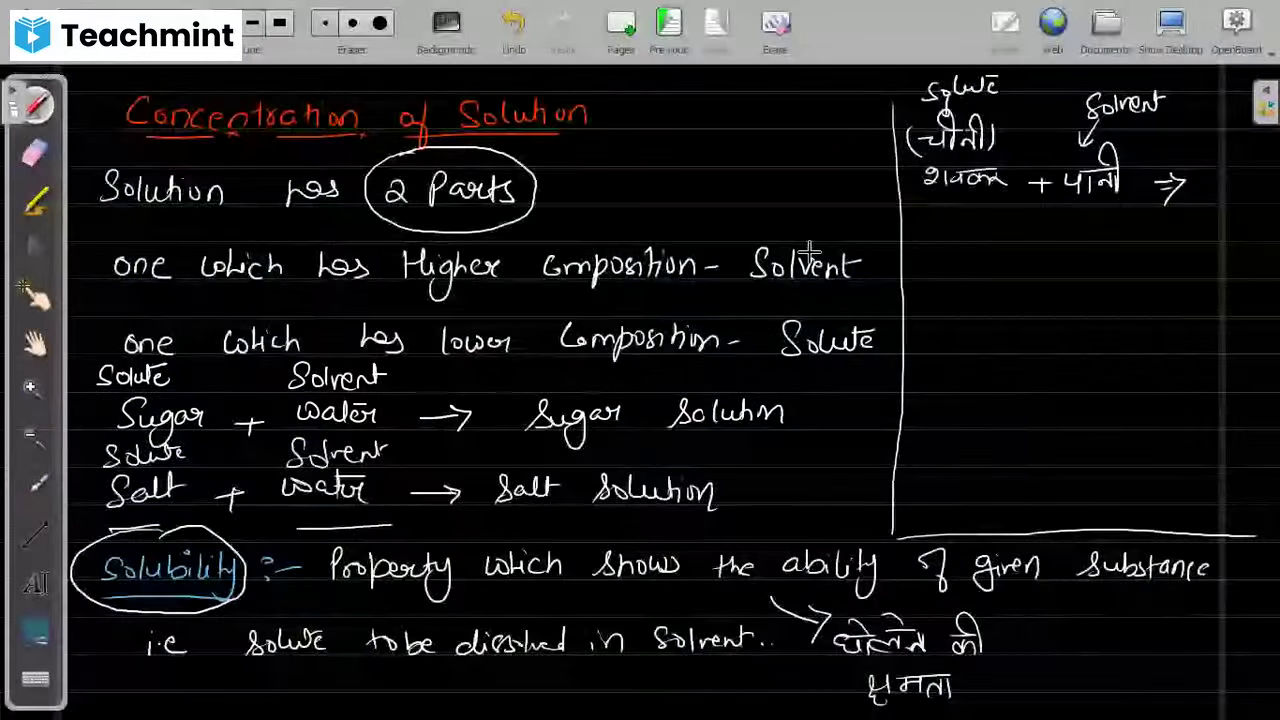 Teachmint
Eraser
Backgrounds
Undo
Pages
Previous
Erase
Web
Documents
Show Desktop
OpenBoard
Concentration of Solution
Solution has 2 Parts
one which has Higher composition - Solvent
one which has lower Composition - Solute
Solute Solvent
Sugar + water → Sugar Solution
Solute Solvent
Salt + water → Salt Solution
Solubility :- Property which shows the ability of given substance
i.e solute to be dissolved in solvent..
घोलने की
क्षमता
solute
Solvent
(चीनी)
शक्कर + पानी ⇒